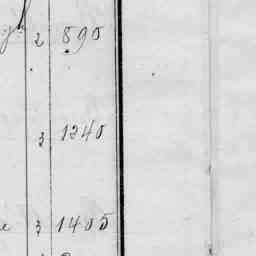 2 890
3 1240
3 1405